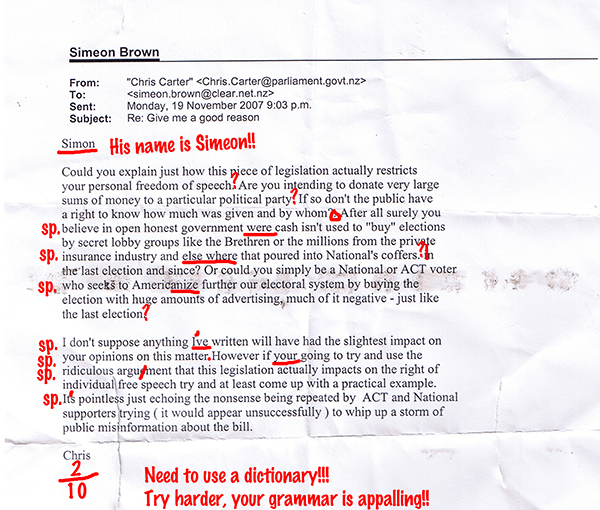 Simeon Brown
From: "Chris Carter" <Chris.Carter@parliament.govt.nz>
To: <simeon.brown@clear.net.nz>
Sent: Monday, 19 November 2007 9:03 p.m.
Subject: Re: Give me a good reason
Simon His name is Simeon!!
Could you explain just how this piece of legislation actually restricts
your personal freedom of speech? Are you intending to donate very large
sums of money to a particular political party? If so don't the public have
a right to know how much was given and by whom? After all surely you
sp. believe in open honest government were cash isn't used to "buy" elections
by secret lobby groups like the Brethren or the millions from the private
sp. insurance industry and else where that poured into National's coffers? In
the last election and since? Or could you simply be a National or ACT voter
sp. who seeks to Americanize further our electoral system by buying the
election with huge amounts of advertising, much of it negative - just like
the last election?
sp. I don't suppose anything I've written will have had the slightest impact on
sp. your opinions on this matter. However if your going to try and use the
sp. ridiculous arguement that this legislation actually impacts on the right of
individual free speech try and at least come up with a practical example.
sp. It's pointless just echoing the nonsense being repeated by ACT and National
supporters trying ( it would appear unsuccessfully ) to whip up a storm of
public misinformation about the bill.
Chris
2/10
Need to use a dictionary!!!
Try harder, your grammar is appalling!!